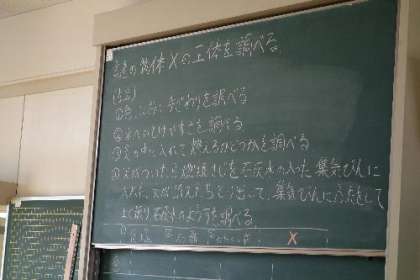 謎の物体Xの正体を調べる。
①色、におい、手ざわりを調べる
②水へのとけやすさを調べる
③火の中に入れて燃えるかどうかを調べる
④火がついたら燃焼さじを石灰水の入った集気びんに
入れ、火が消えたら とり出して、集気びんにふたをして
よく振り石灰水のようすを調べる。
X